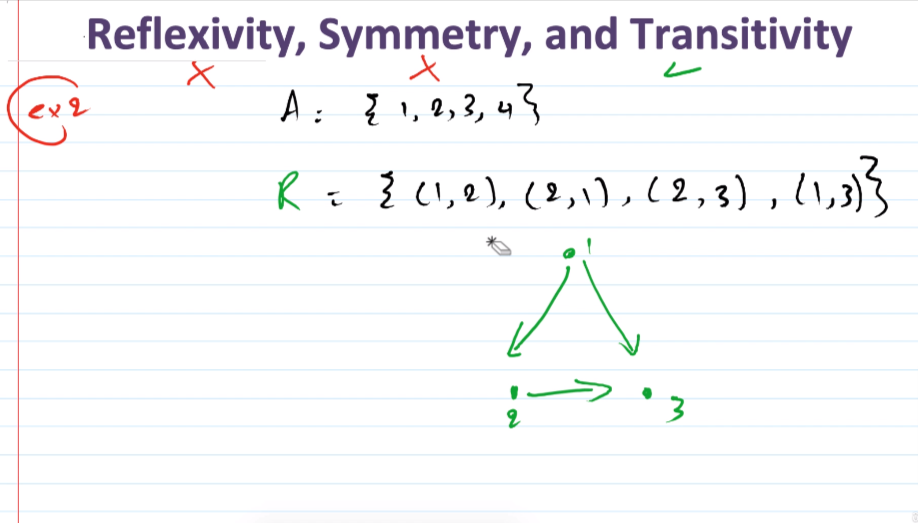 Reflexivity, Symmetry, and Transitivity
ex2
A : { 1, 2, 3, 4 }
R = { (1,2), (2,1), (2,3), (1,3) }
1
2
3